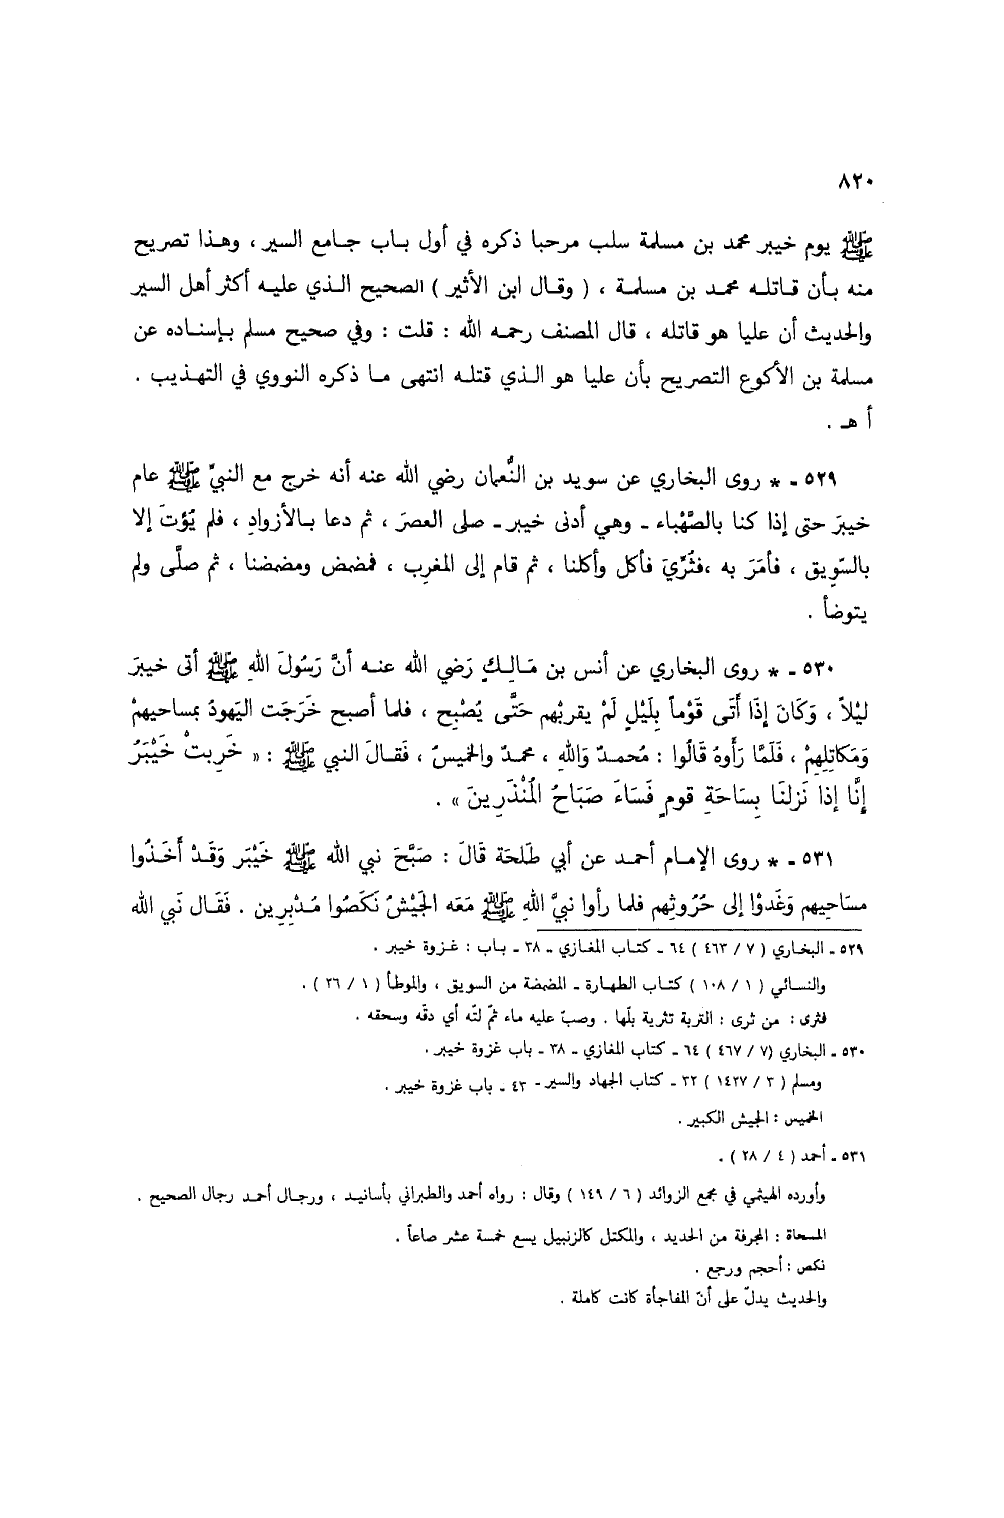 ٨٢٠
ﷺ يوم خيبر محمد بن مسلمة سلب مرحبا ذكره في أول بـاب جـامع السير ، وهـذا تصريح
منه بـأن قـاتلـه محمـد بن مسلمـة ، ( وقـال ابن الأثير ) الصحيح الـذي عليـه أكثر أهل السير
والحديث أن عليا هو قاتله ، قال المصنف رحمـه الله : قلت : وفي صحيح مسلم بـإسنـاده عن
مسلمة بن الأكوع التصريح بأن عليا هو الـذي قتلـه انتهى مـا ذكره النووي في التهـذيب .
أ هـ .
٥٢٩ ـ * روى البخاري عن سويد بن النُّعمان رضي الله عنه أنه خرج مع النبيِّ ﷺ عام
خيبرَ حتى إذا كنا بالصَّهْباء ـ وهي أدنى خيبر ـ صلى العصرَ ، ثم دعا بـالأزوادِ ، فلم يُؤتَ إلا
بالسّوِيق ، فأمَرَ به ،فثُرِّيَ فأكل وأكلنا ، ثم قام إلى المغربِ ، فمضمض ومضمضنا ، ثم صلَّى ولم
يتوضأ .
٥٣٠ ـ * روى البخاري عن أنس بن مَـالِـكٍ رَضي الله عنـه أنَّ رَسُولَ اللهِ ﷺ أتى خيبرَ
ليْلاً ، وَكَانَ إذَا أَتَى قَوْماً بِلَيْلٍ لَمْ يقربْهم حَتَّى يُصْبِح ، فلما أصبح خَرَجَت اليَهودُ بمساحيهمْ
وَمَكاتِلِهِمْ ، فَلَمَّا رَأَوهُ قَالُوا : مُحمـدٌ وَاللهِ ، محمدٌ والخميسُ ، فَقـالَ النبي ﷺ : « خَرِبتْ خَيْبَرُ
إنَّا إذا نَزلنَا بِسَاحَةِ قومٍ فَسَاءَ صَبَاحُ المُنْذَرِينَ » .
٥٣١ ـ * روى الإمـام أحمـد عن أبي طَلحَة قَالَ : صَبَّحَ نبي الله ﷺ خَيْبَر وَقَـدْ أَخَـذُوا
مسَاحِيهم وَغَدوْا إلى حُرُوثهم فلما رأوا نبيَّ اللهِ ﷺ مَعَه الجَيْشُ نَكَصُوا مُـدْبِرِين . فَقَـال نَبي الله
٥٢٩ ـ البخاري ( ٧ / ٤٦٣ ) ٦٤ ـ كتـاب المغازي ـ ٣٨ ـ بـاب : غـزوة خيبر .
والنسائي ( ١ / ١٠٨ ) كتـاب الطهـارة ـ المضمضة من السويق ، والموطأ ( ١ / ٢٦ ) .
فثرى : من ثرى : التربة تثرية بلّها . وصبّ عليه ماء ثمّ لتّه أي دقّه وسحقه .
٥٣٠ ـ البخاري (٧ / ٤٦٧ ) ٦٤ ـ كتاب المغازي ـ ٣٨ ـ باب غزوة خيبر .
ومسلم ( ٣ / ١٤٢٧ ) ٣٢ ـ كتاب الجهاد والسير ـ ٤٣ ـ باب غزوة خيبر .
الخميس : الجيش الكبير .
٥٣١ ـ أحمد ( ٤ / ٢٨ ) .
وأورده الهيثمي في مجمع الزوائد ( ٦ / ١٤٩ ) وقال : رواه أحمد والطبراني بأسانيـد ، ورجـال أحمـد رجال الصحيح .
المسحاة : المجرفة من الحديد ، والمكتل كالزنبيل يسع خمسة عشر صاعاً .
نكص : أحجم ورجع .
والحديث يدلّ على أنّ المفاجأة كانت كاملة .